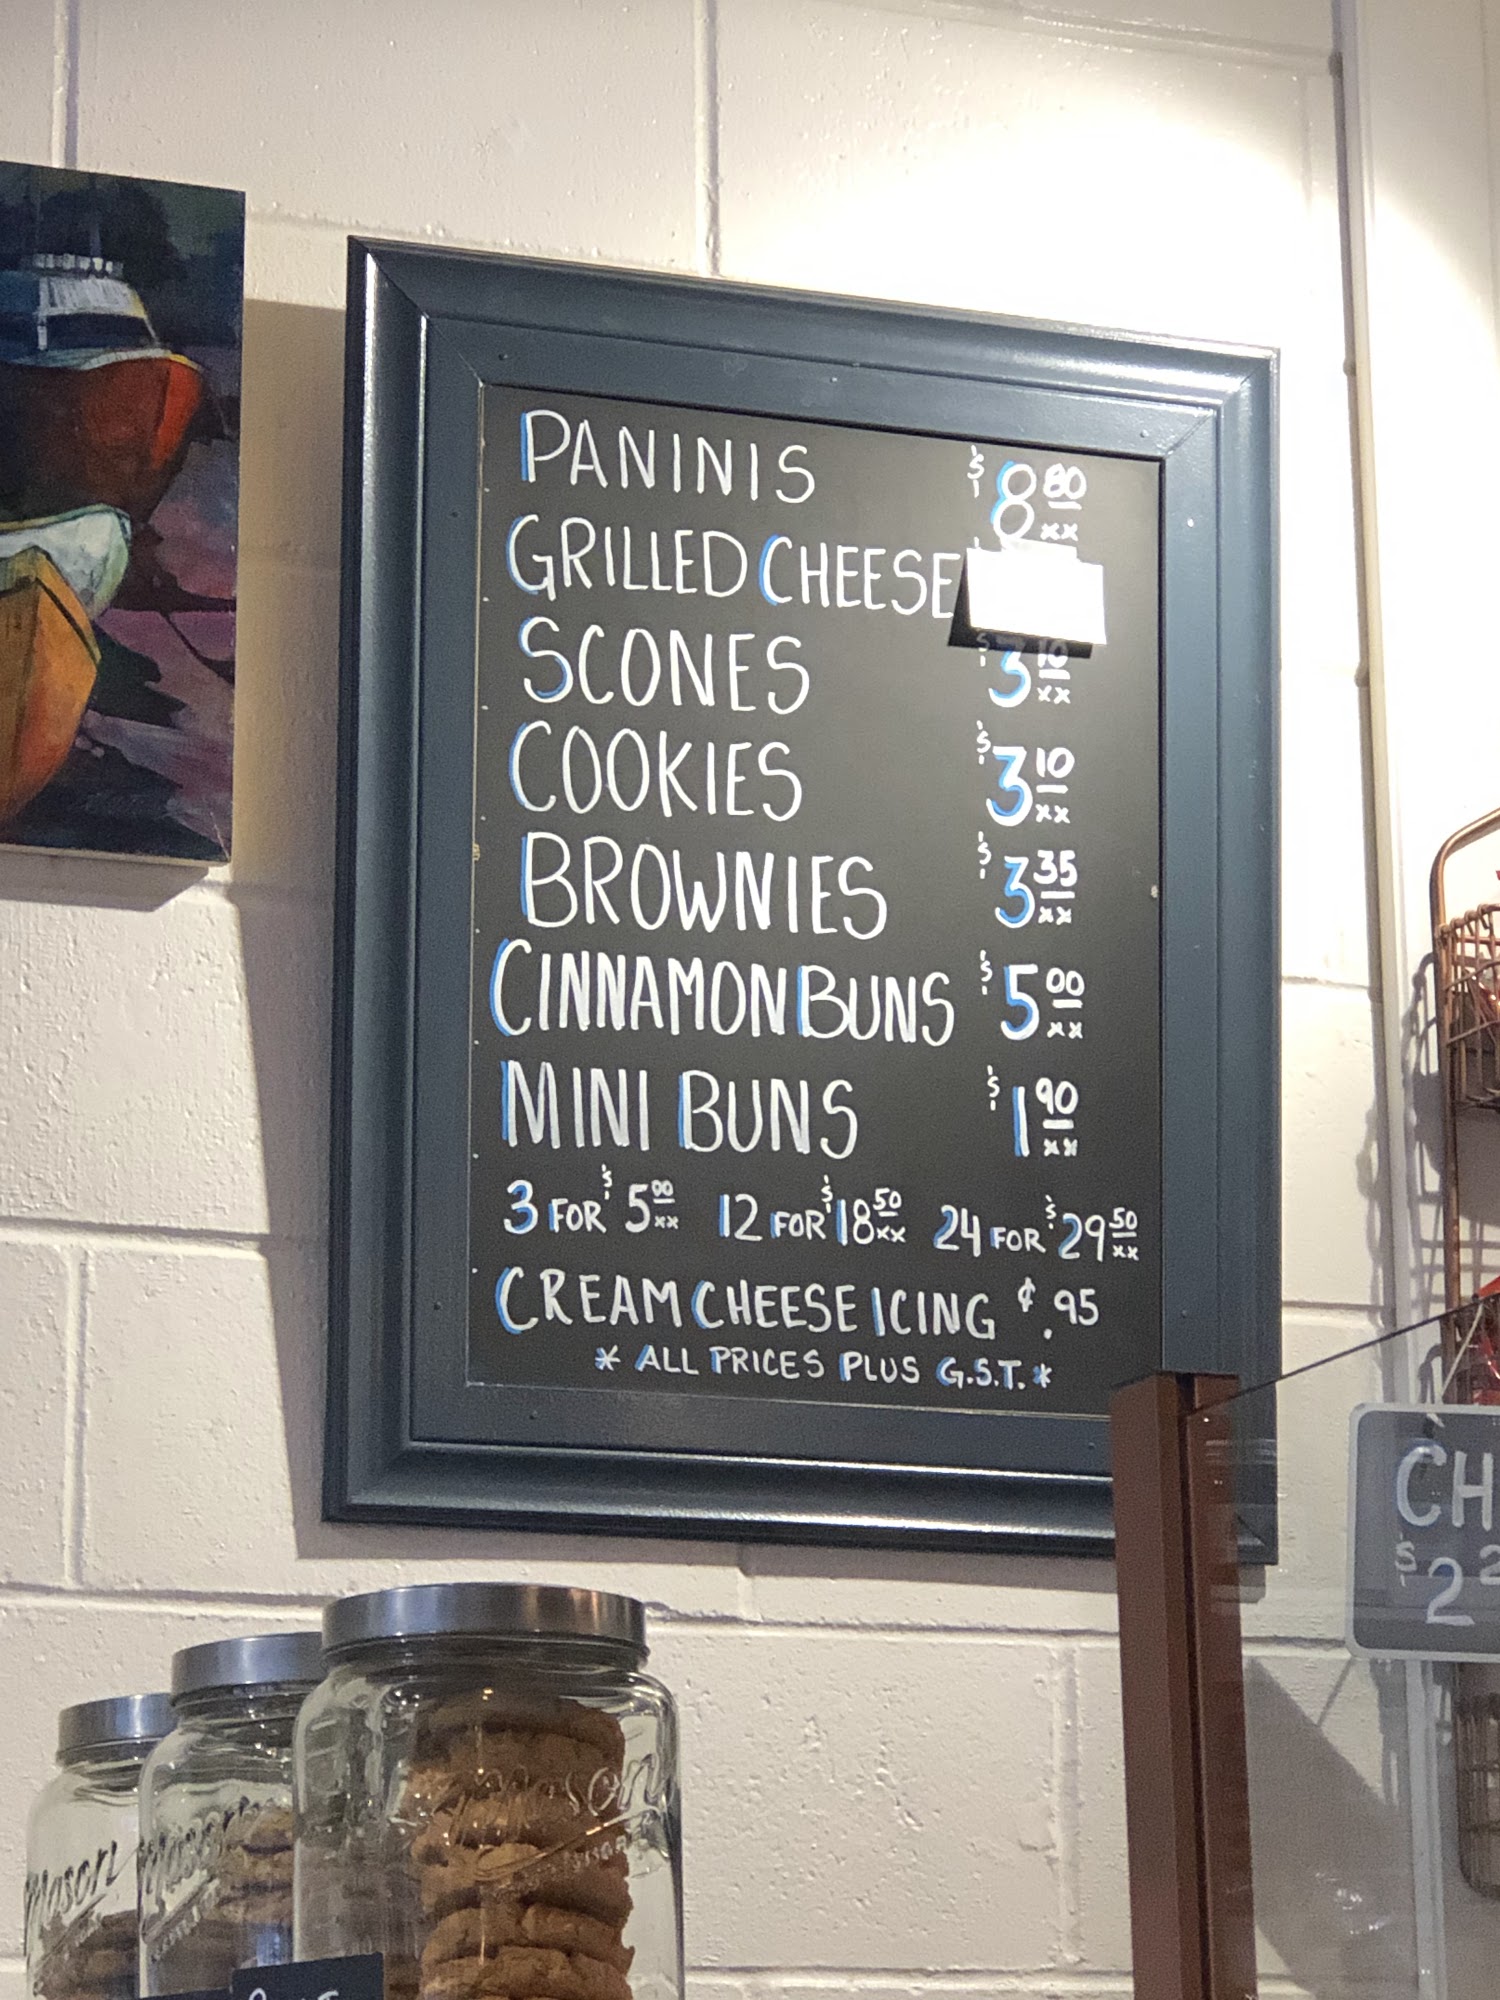 PANINIS $8 80/xx
GRILLED CHEESE
SCONES $3 10/xx
COOKIES $3 10/xx
BROWNIES $3 35/xx
CINNAMON BUNS $5 00/xx
MINI BUNS $1 90/xx
3 FOR $5 00/xx 12 FOR $18 50/xx 24 FOR $29 50/xx
CREAM CHEESE ICING ¢.95
* ALL PRICES PLUS G.S.T. *
CH
$2 2
Mason
Mason
Mason